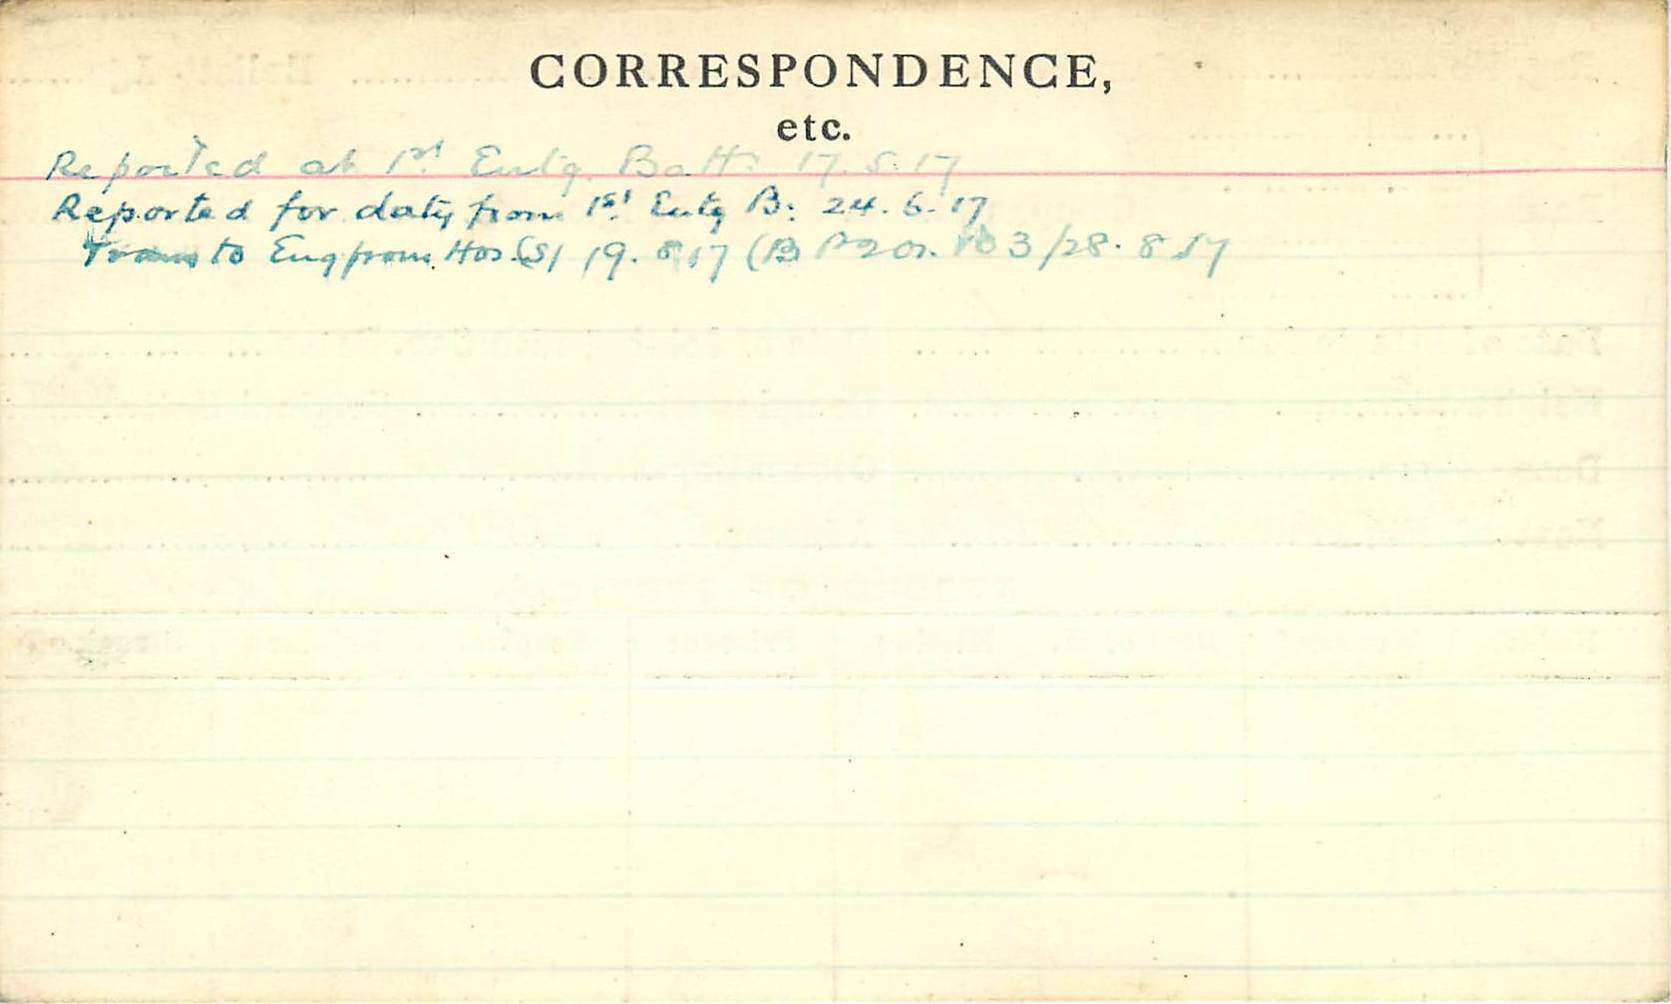 CORRESPONDENCE,
etc.
Reported at 1st Entg. Batt: 17.5.17
Reported for duty from 1st Entg B: 24.6.17
Trans to Eng from Hos. (S) 19.8.17 (B 3/28.8.17